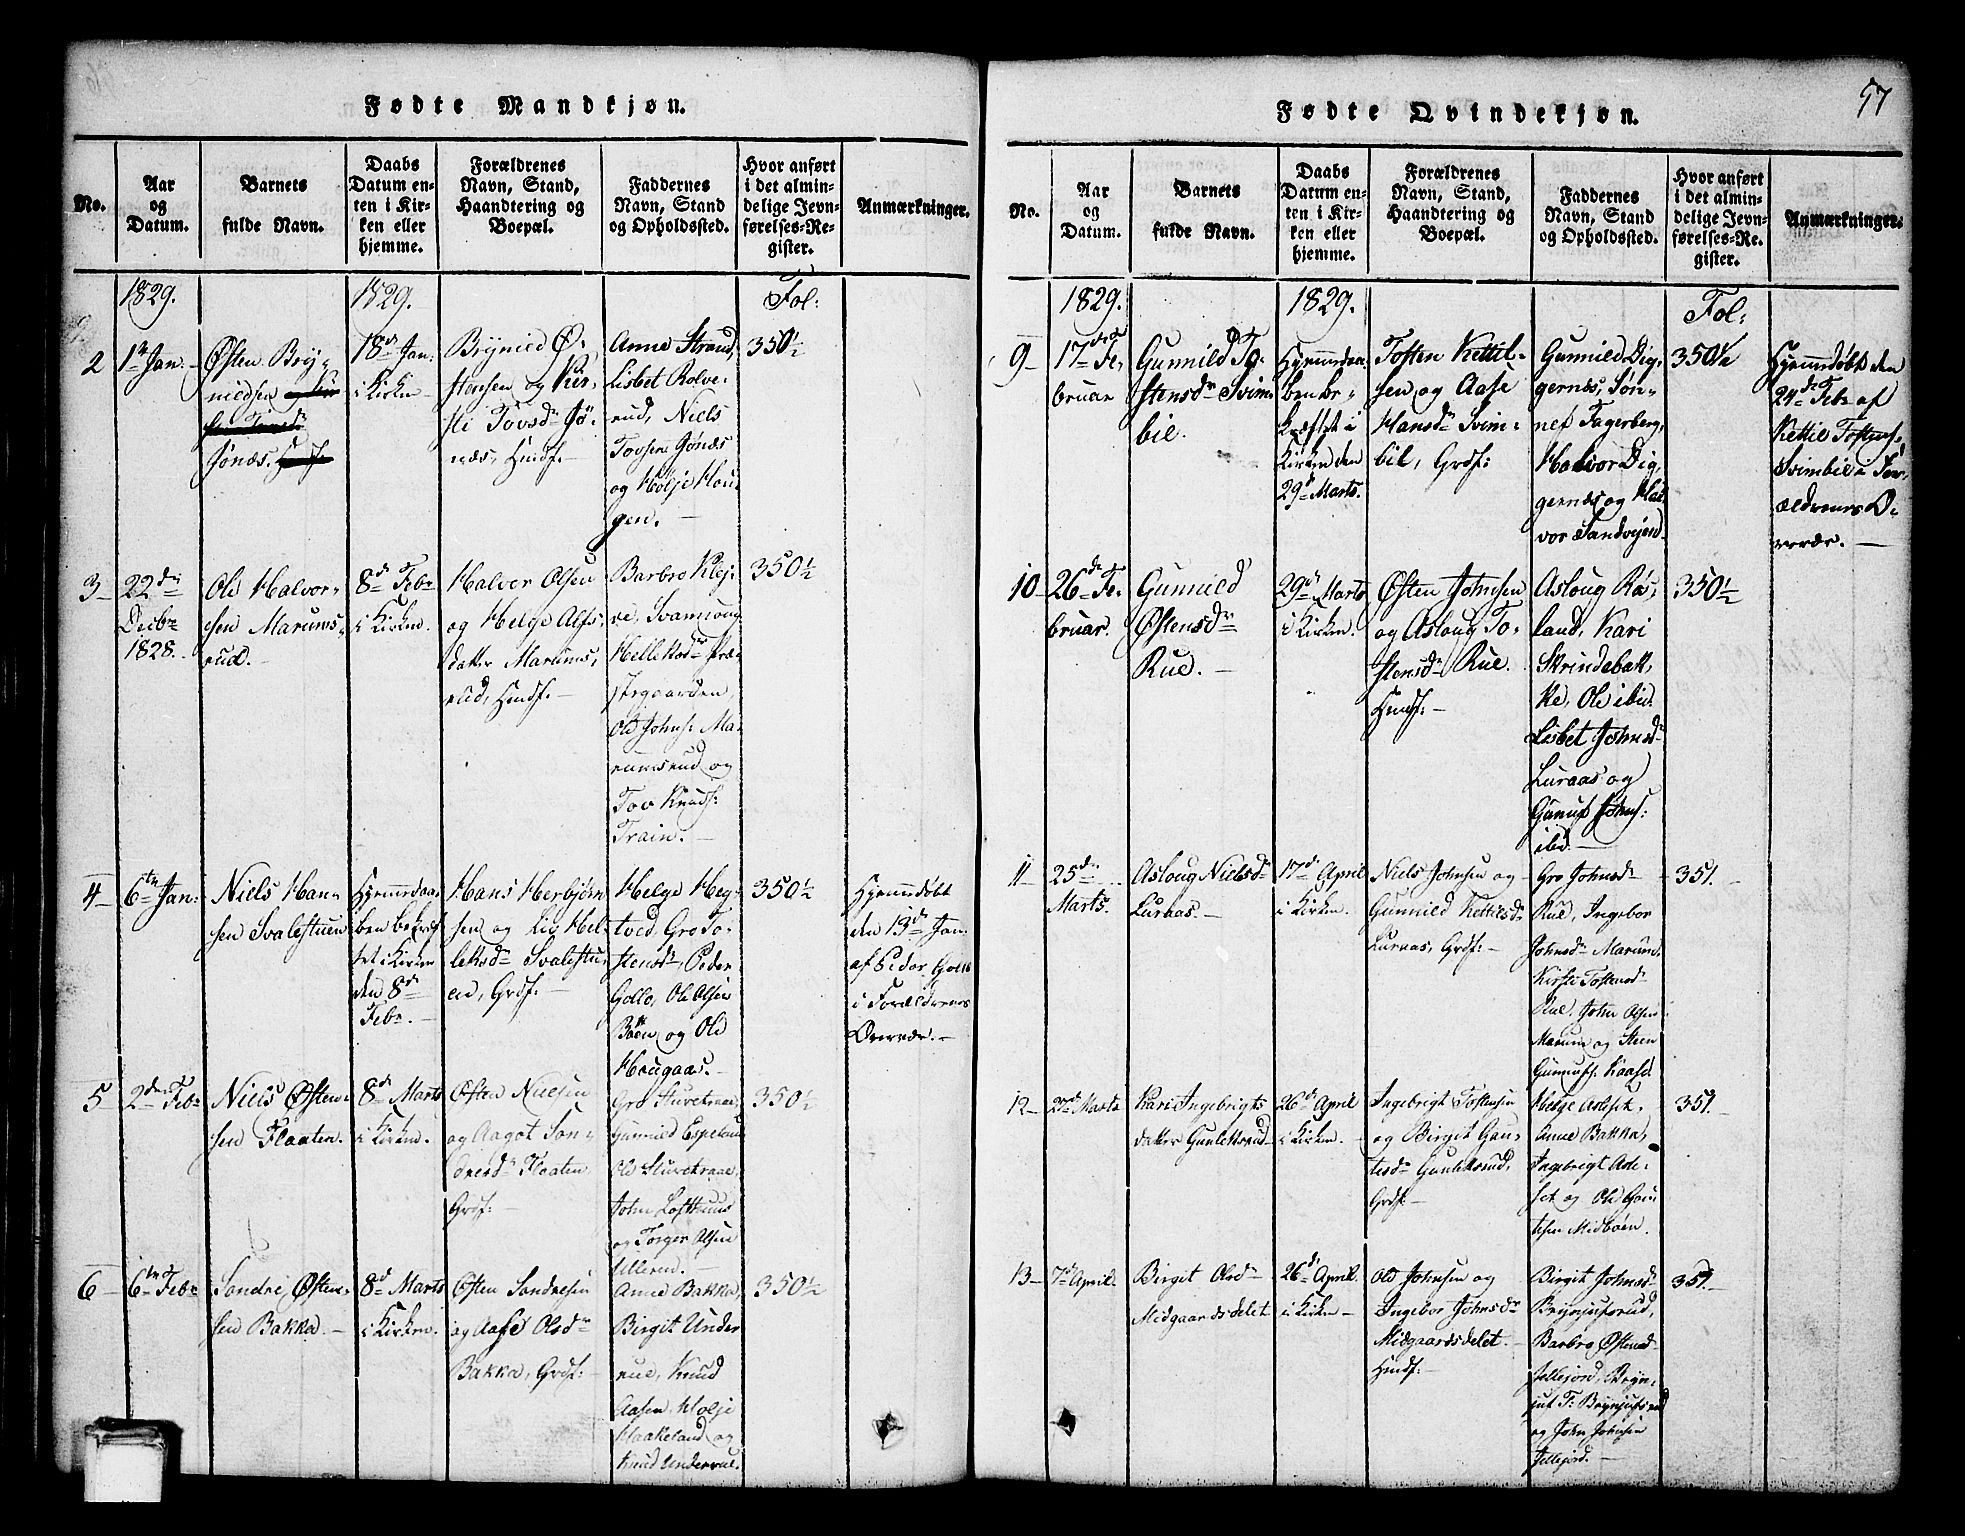 Fødte Mandkjøn.
No.
Aar
og
Datum.
Barnets
fulde Navn.
Daabs
Datum en-
ten i Kir-
ken eller
hjemme.
Forældrenes
Navn, Stand,
Haandtering og
Boepæl.
Faddernes
Navn, Stand
og Opholdssted.
Hvor anført
i det almin-
delige Jevn-
førelses-Re-
gister.
Anmærkninger.
1829.
1829.
Fol:
2
1ste Jan.
Østen Bry-
nieldsen
Jønæs.
18de Jan:
i Kirken
Brynield Ø-
stensen og Kir-
sti Tovsdr Jø-
næs, Huusf.
Anne Strand,
Lisbet Rolve-
rud, Niels
Tovsen Jønæs
og Holje Hou-
gen.
350½
3
22de
Decbr
1828.
Ole Halvor-
sen Marums-
rud.
8de Febr
i Kirken.
Halvor Olsen
og Helge Alfs-
datter Marums-
rud, Huusf.
Barbro Klej-
ve, Svannoug
Helleksdr Præ-
stegaarden,
Ole Johns: Ma-
rumsrud og
Tov Knuds:
Train.
350½
4
6te Jan:
Niels Han-
sen Svalestuen
Hjemmedaa-
ben bekræf-
tet i Kirken
den 8de
Febr.
Hans Herbjørn-
sen og Liv Hel-
leksdr Svalestu-
en, Grdf:
Helge Heg-
tved, Gro To-
stensdr, Peder
Gollo, Ole Olsen
Bøen og Ole
Hougaas.
350½
Hjemmedøbt
den 13de Jan.
af Peder Gollo
i Forældrenes
Overvær.
5
2den Febr
Niels Østen-
sen Flaaten.
8de Marts
i Kirken.
Østen Nielsen
og Aagot Son-
dresdr Flaaten
Grdf:
Gro Sturekraae,
Gunnild Espeland
Ole Sturekraae,
John Lofthuus
og Torger Olsen
Ulleren.
350½
6
6te Febr
Sondre Østen-
sen Bakka.
8de Marts
i Kirken.
Østen Sondresen
og Aase Olsdr
Bakka, Grdf:
Anne Bakka,
Birgit Under
rue, Knud
Aasen, Holje
Haakeland og
Knud Underrue.
350½
Fødte Qvindekjøn.
57
No.
Aar
og
Datum.
Barnets
fulde Navn.
Daabs
Datum en-
ten i Kir-
ken eller
hjemme.
Forældrenes
Navn, Stand,
Haandtering og
Boepæl.
Faddernes
Navn, Stand
og Opholdssted.
Hvor anført
i det almin-
delige Jevn-
førelses-Re-
gister.
Anmærkninger.
1829.
1829.
Fol:
9
17de Fe-
bruar
Gunnild To-
stensdr Svim-
bil.
Hjemmedaa-
ben be-
kræftet i
Kirken den
29de Marts.
Tosten Kettil-
sen og Aase
Hansdr Svim-
bil, Grdf:
Gunnild Dig-
gernæs, Søn-
nef Fagerberg,
Halvor Dig-
gernæs og Hal-
vor Sandvejen
350½
Hjemmedøbt den
24de Febr af
Kettil Tostens:
Svimbil i For-
ældrenes O-
vervær.
10
26de Fe-
bruar.
Gunnild
Østensdr
Rue.
29de Marts
i Kirken.
Østen Johnsen
og Asloug To-
stensdr Rue.
Huusf:
Asloug Rø-
land, Kari
Skrindebak-
ke, Ole ibid.
Lisbet Johnsdr
Luraas og
Gunuf Johns:
ibd.
350½
11
25de
Marts.
Asloug Nielsdr
Luraas.
17de April
i Kirken.
Niels Johnsen og
Gunnild Kettilsdr
Luraas, Grdf:
Gro Johnsdr
Rue, Ingebor
Johnsdr Marum,
Kirsti Tostensdr
Rue, John Olsen
Marum og Steen
Gunnufs: Kaase.
351.
12
Marts
Kari Ingebrigts
datter Gunleksrud
26de April
i Kirken.
Ingebrigt Tostensen
og Birgit Gau-
tesdr Gunleksrud,
Grdf:
Helge Asleset,
Anne Bakka,
Ingebrigt Asle-
set og Ole Gau-
tesen Midbøen.
351.
13
7de April.
Birgit Olsdr
Midgaardsdelet
26de April.
i Kirken
Ole Johnsen og
Ingebor Johnsdr
Midgaardsdelet.
Huusf:
Birgit Johnsdr
Brynjufsrud,
Barbro Østensdr
Jellejord, Bryn-
jul T: Brynjufsrud
og John Johnsen
Jellejord.
351.